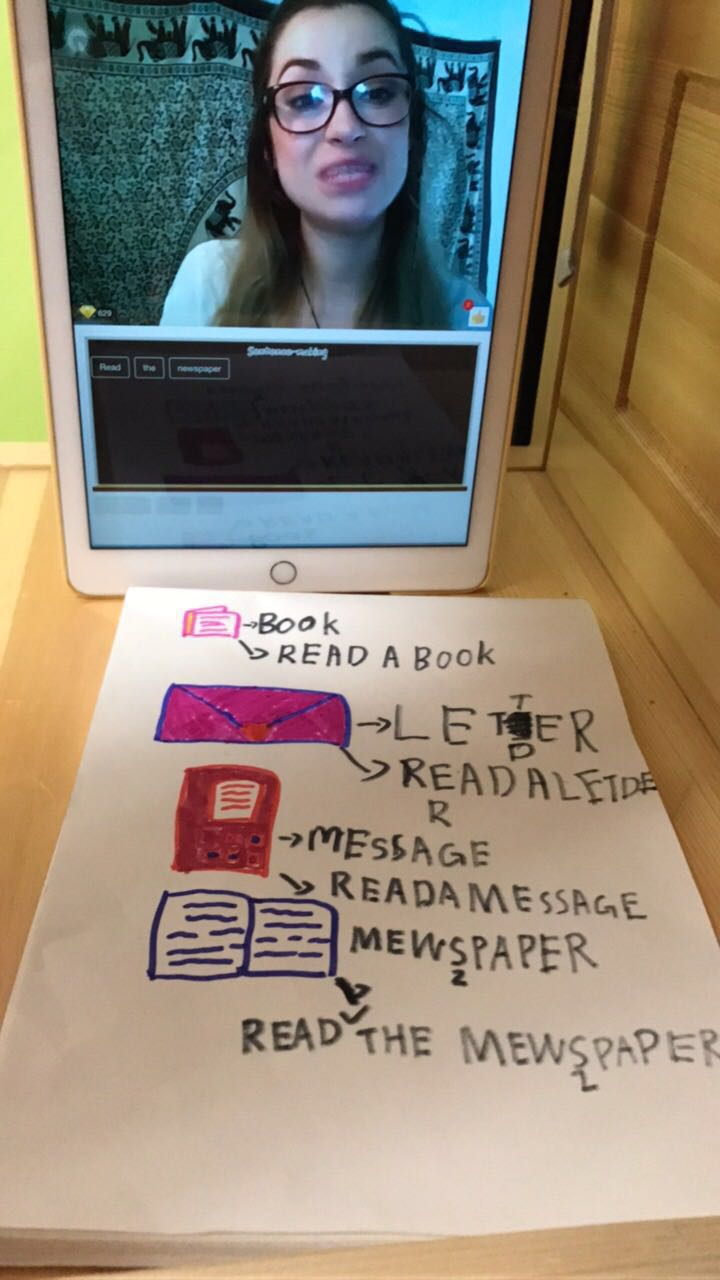 629
Sentence-making
Read the newspaper
BOOK
READ A BOOK
LETTER
D
READ A LETDE
R
MESSAGE
READ A MESSAGE
MEWSPAPER
2
READ THE MEWSPAPER
2